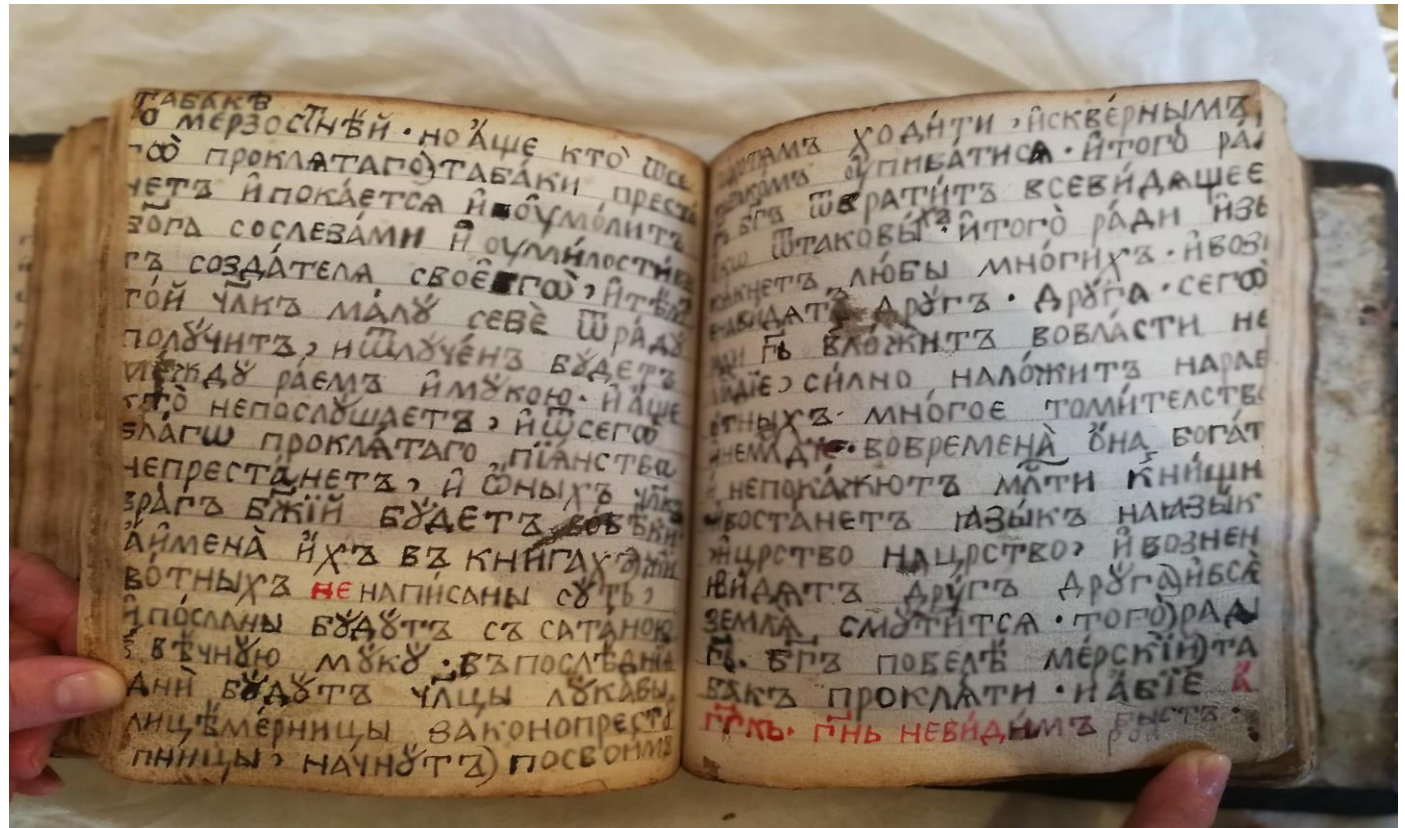 ТАБАКѢ
ѡ҆ МЕ́РЗОСТНѢЙ · НО А҆́ЩЕ КТО̀ Ѿ СЕ
ГѠ̀ ПРОКЛѦТАГО) ТАБА́КИ ПРЕСТА
НЕТЪ И҆ ПОКА́ЕТСѦ И҆ ОУ҆МО́ЛИТЪ
БО́ГА СОСЛЕЗА́МИ И҆ ОУМИ́ЛОСТИВИ
ТЪ СОЗДА́ТЕЛѦ СВОЕ҆ГѠ̀, И҆
ТО́Й ЧЛ҃КЪ МА́ЛꙊ СЕБЀ ѾРА́ДꙊ
ПОЛꙊ́ЧИТЪ, И ѾЛꙊЧЕ́НЪ БꙊ́ДЕТЪ
МЕ́ЖДꙊ РА́ЕМЪ И҆ МꙊ́КОЮ · И҆ А҆́ЩЕ
КТО̀ НЕПОСЛꙊ́ШАЕТЪ, И҆ Ѿ СЕГѠ̀
БЛА́ГѠ ПРОКЛѦ́ТАГО ПЇѦ́НСТВА
НЕПРЕСТА́НЕТЪ, И҆ Ѻ҆НЫХЪ
ВРА́ГЪ БЖ҃ЇЙ БꙊ́ДЕТЪ ВОВѢ́КИ
А҆ И҆МЕНА̀ И҆́ХЪ ВЪ КНИ́ГАХЪ ЖИ
ВО́ТНЫХЪ НЕ НАПИ́САНЫ СꙊ́ТЬ,
И҆ ПО́СЛАНЫ БꙊ́ДꙊТЪ СЪ САТАНО́Ю
В ВѢ́ЧНꙊЮ МꙊ́КꙊ · ВЪ ПОСЛѢ́ДНІѦ
ДНЍ БꙊ́ДꙊТЪ ЧЛ҃ЦЫ ЛꙊКА́ВЫ,
ЛИЦѢМЕ́РНИЦЫ ЗАКОНОПРЕСТꙊ
ПНИЦЫ, НА́ЧНꙊТЪ) ПОСВОИМЪ
ХОДИ́ТИ, И҆ СКВЕ́РНЫМЪ,
ОУ҆ПИВА́ТИСѦ · И҆ ТОГО̀ РА́
БГ҃Ъ ѾВРАТИ́ТЪ ВСЕВИ́ДѦЩЕЕ
ѾТАКОВЫ́ХЪ · И҆ ТОГО̀ РА́ДИ И҆ЗЬ
ЛЮ́БЫ МНО́ГИХЪ · И҆ ВОЗ
НАВИ́ДѦТЪ ДРꙊ́ГЪ · ДРꙊ́ГА · СЕГѠ̀
РАДИ Гд҃Ь ВЛО́ЖИТЪ ВОВЛА́СТИ НЕ
СИ́ЛНО НАЛО́ЖИТЪ НАРАБ
О́ТНЫХЪ · МНО́ГОЕ ТОМИ́ТЕЛСТВО
ВОВРЕМЕНА̀ Ѻ҆́НА БОГА́Т
И҆ НЕПОКА́ЖЮТЪ МЛ҃ТИ К НИ́ЩИ
ВОСТА́НЕТЪ Ѩ҆ЗЫ́КЪ НАѨЗЫ́К
И҆ ЦРСТВО НАЦРСТВО, И҆ ВОЗНЕН
АВИ́ДѦТЪ ДРꙊ́ГЪ ДРꙊ́ГА) И҆ ВСѦ̀
ЗЕМЛѦ̀ СМꙊТИ́ТСѦ · ТОГО̀) РАДИ
Гд҃Ь. БГ҃Ъ ПОВЕЛѢ̀ МЕ́РСКЇЙ) ТА
БАКЪ ПРОКЛѦ́ТИ · И А҆́БЇЕ К
ГЛ҃КЪ · ГД҃НЬ НЕВИ́ДИМЪ БЫСТЬ ·